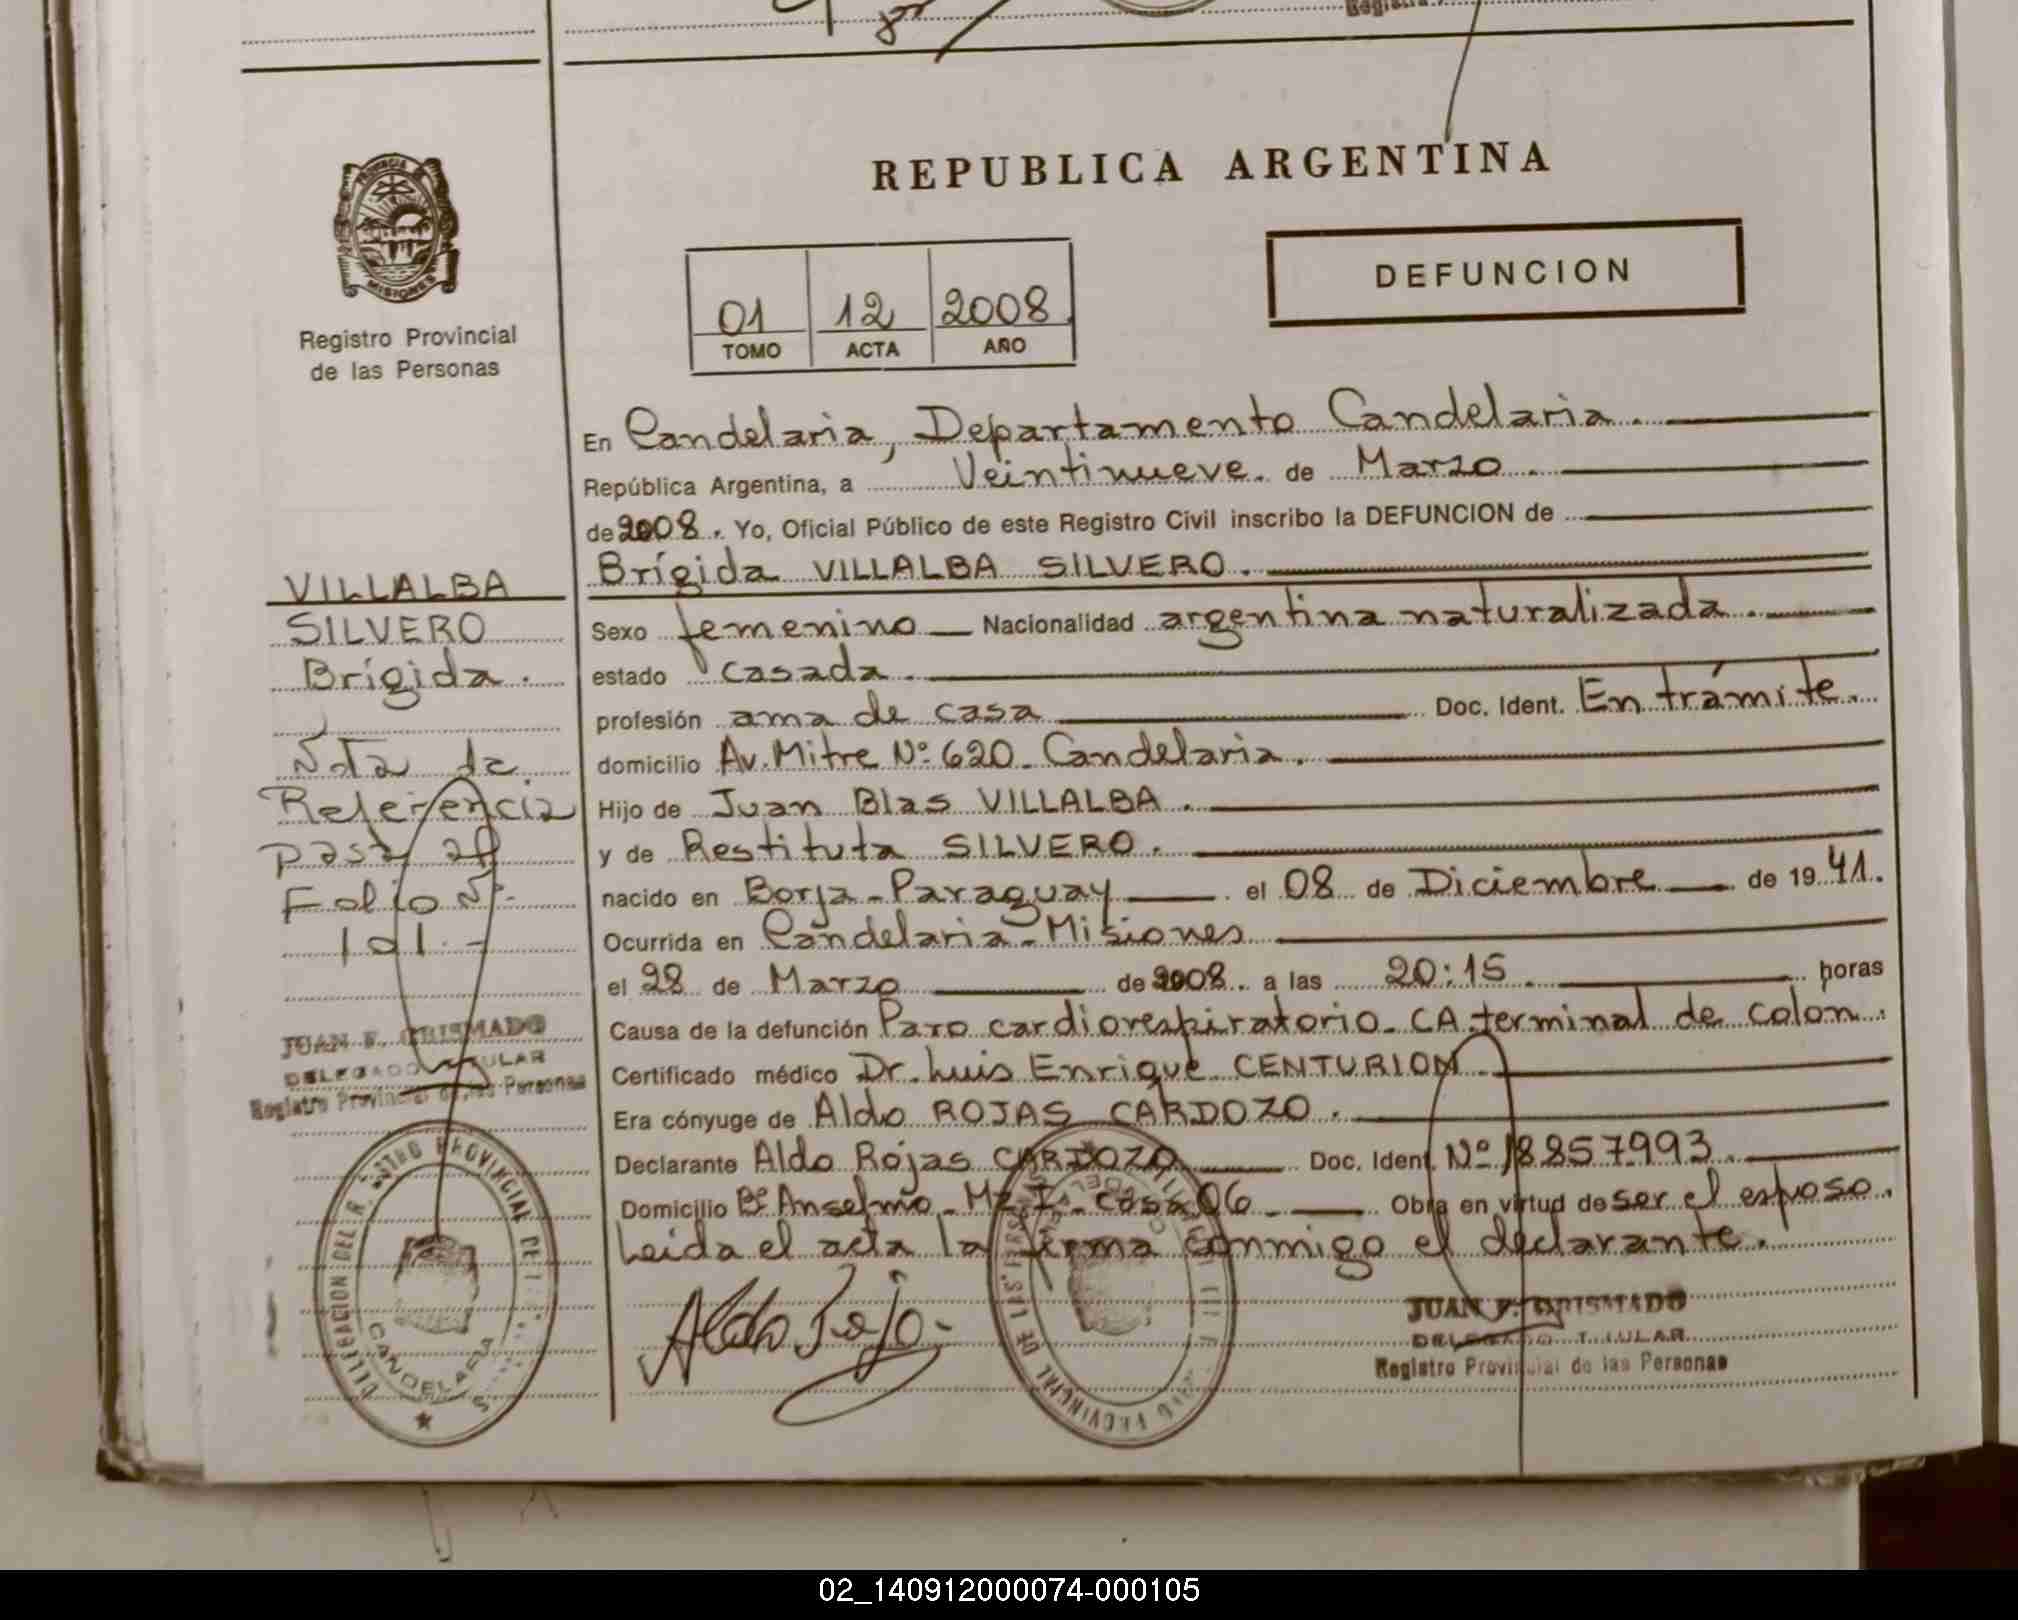 REPUBLICA ARGENTINA
PROVINCIA
MISIONES
Registro Provincial
de las Personas
DEFUNCION
01 12 2008
TOMO ACTA AÑO
En Candelaria, Departamento Candelaria.
República Argentina, a Veintinueve. de Marzo.
de 2008. Yo, Oficial Público de este Registro Civil inscribo la DEFUNCION de
Brígida VILLALBA SILVERO.
Sexo femenino Nacionalidad argentina naturalizada.
estado casada.
profesión ama de casa Doc. Ident. En trámite.
domicilio Av. Mitre Nº 620. Candelaria.
Hijo de Juan Blas VILLALBA.
y de Restituta SILVERO.
nacido en Borja - Paraguay el 08 de Diciembre de 1941.
Ocurrida en Candelaria - Misiones
el 28 de Marzo de 2008. a las 20:15. horas
Causa de la defunción Paro cardiorespiratorio - CA. terminal de colon.
Certificado médico Dr. Luis Enrique CENTURION.
Era cónyuge de Aldo ROJAS CARDOZO.
Declarante Aldo Rojas CARDOZO Doc. Ident. Nº 18857993.
Domicilio Bº Anselmo - Mz I - casa 06. Obra en virtud de ser el esposo.
Leida el acta la firma conmigo el declarante.
Aldo Rojo
JUAN F. GRISMADO
DELEGADO TITULAR
Registro Provincial de las Personas
VILLALBA
SILVERO
Brígida.
Nota de
Referencia
pasa al
Folio Nº
101.-
JUAN F. GRISMADO
DELEGADO TITULAR
Registro Provincial de las Personas
DELEGACION DEL REGISTRO PROVINCIAL DE LAS PERSONAS
CANDELARIA
02_140912000074-000105